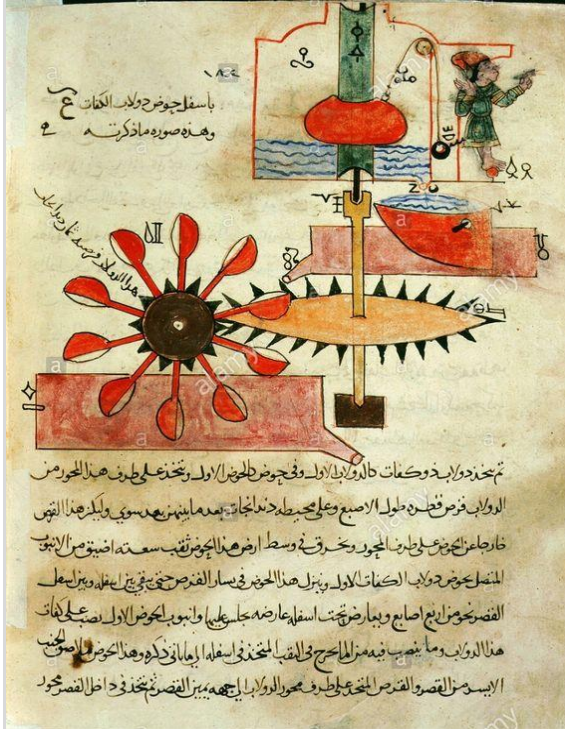 باسفل حوض دولاب الكفات
وهذه صوره ما ذكرته
ثم يتخذ دولاب ذو كفات كالدولاب الاول وفي حوض كالحوض الاول ويتخذ على طرف هذا المحور من
الدولاب قرص قطره طول الاصبع وعلى محيطه دندانجات بعد ما بينهن بعد سوي وليكن هذا القرص
خارجا عن الحوض على طرف المحور ويخرق في وسط ارض هذا الحوض ثقب سعته اضيق من الانبوب
المتصل بحوض دولاب الكفات الاول وينزل هذا الحوض في يسار القصر حتى يبقى بين اسفله وبين اسفل
القصر نحو من اربع اصابع ويعارض تحت اسفله عارضه يجلس عليها وانبوب الحوض الاول يصب على كفات
هذا الدولاب وما ينصب فيه من الماء يخرج في الثقب المتخذ في اسفله وهذا الحوض ملاصق لجنب
الايسر من القصر والقرص المتخذ على طرف محور الدولاب الى جهه يمين القصر ثم يتخذ في داخل القصر محور
alamy